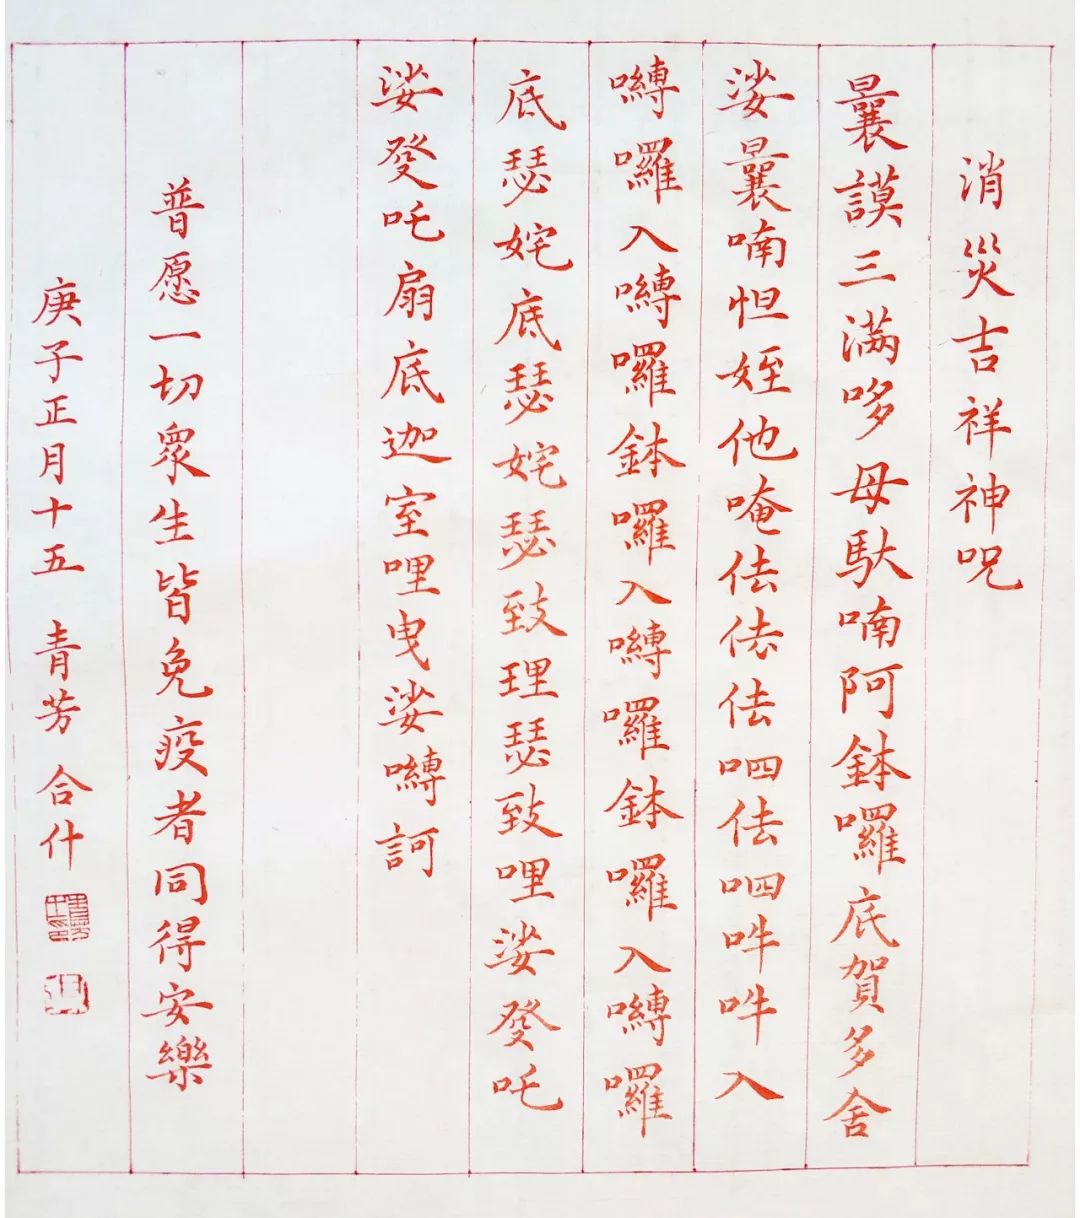 消災吉祥神呪
曩謨三满哆母馱喃阿鉢囉底賀多舍
娑曩喃怛姪他唵佉佉佉呬佉呬吽吽入
嚩囉入嚩囉鉢囉入嚩囉鉢囉入嚩囉
底瑟姹底瑟姹瑟致理瑟致哩娑發吒
娑發吒扇底迦室哩曳娑嚩訶
普愿一切衆生皆免疫者同得安樂
庚子正月十五 青芳 合什